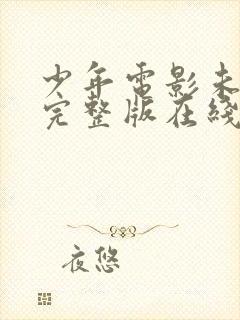 少年電影未
完整版在綫
夜悠